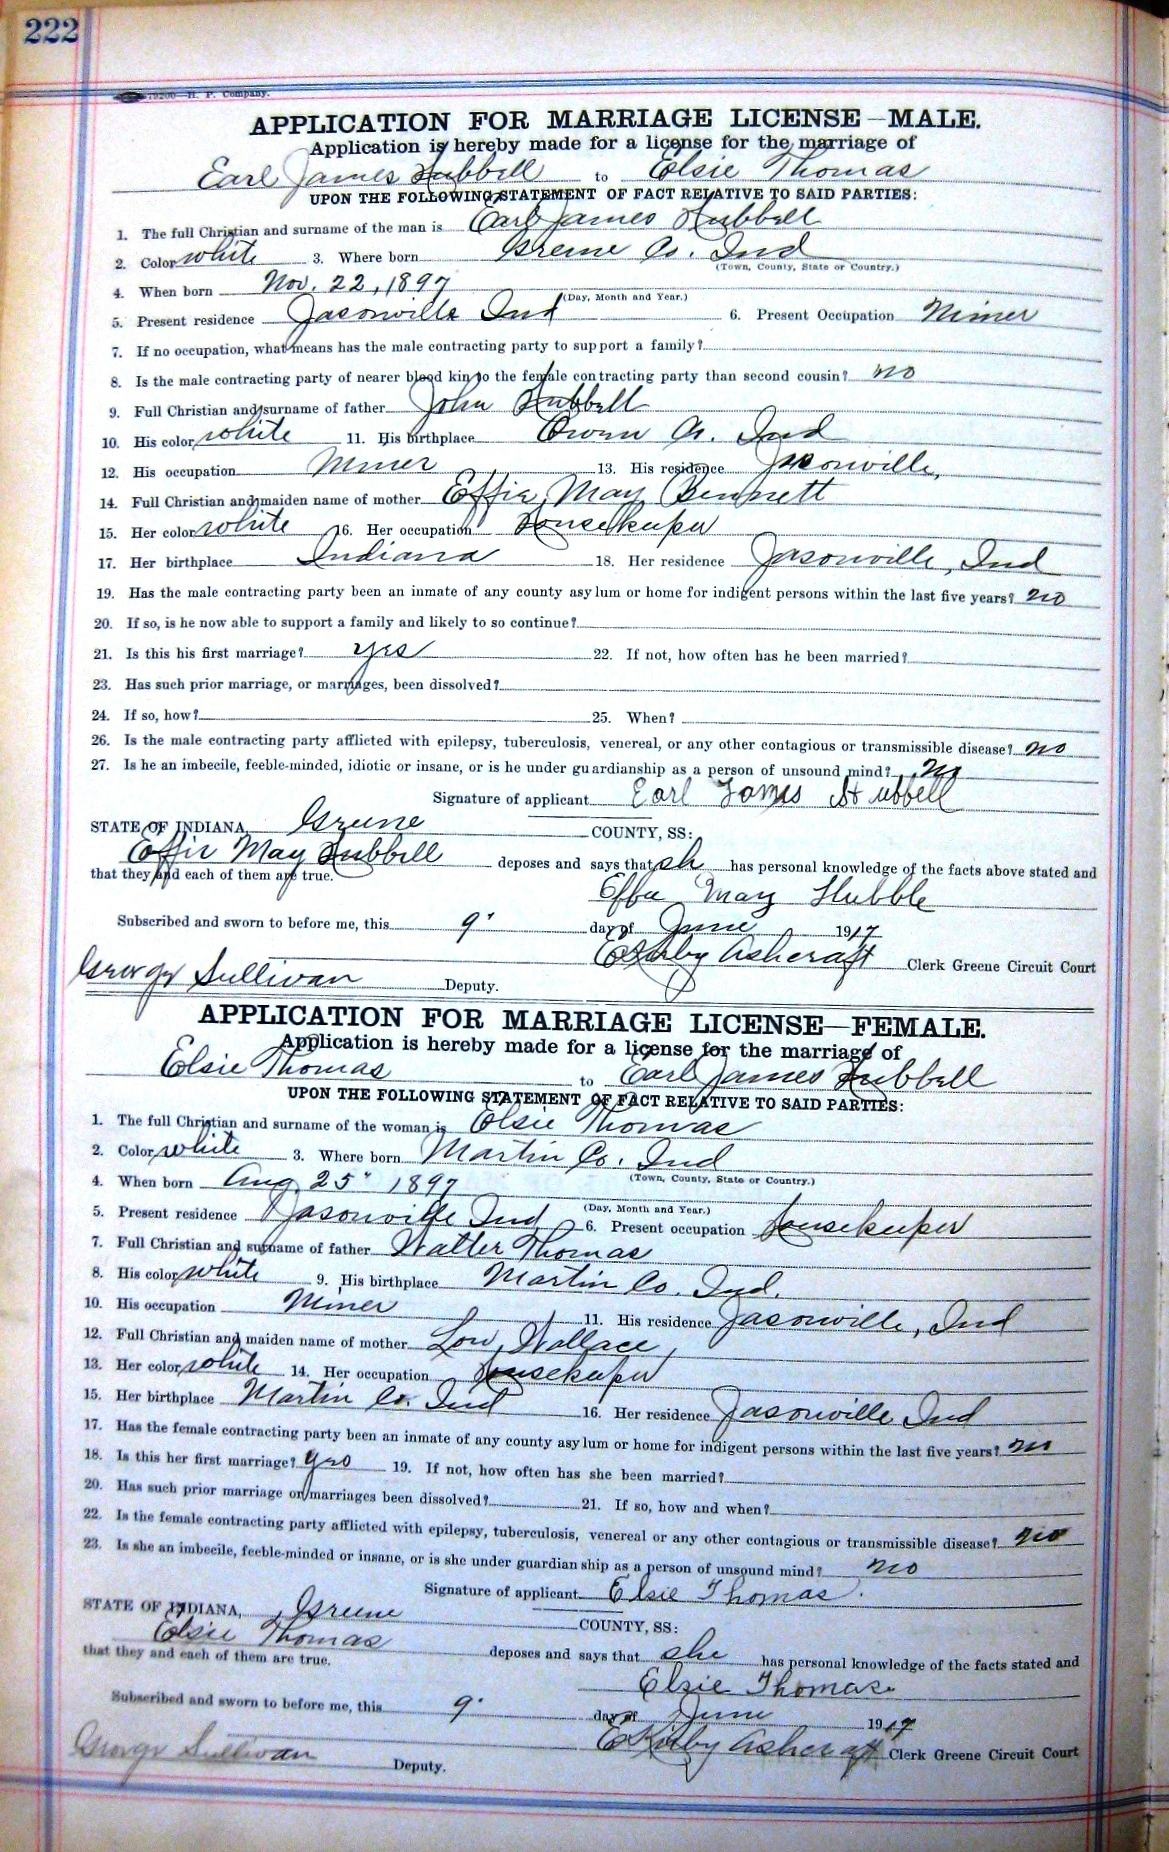 222
79200—H. P. Company.
APPLICATION FOR MARRIAGE LICENSE—MALE.
Application is hereby made for a license for the marriage of
Earl James Hubbell to Elsie Thomas
UPON THE FOLLOWING STATEMENT OF FACT RELATIVE TO SAID PARTIES:
1. The full Christian and surname of the man is Earl James Hubbell
2. Color white 3. Where born Greene Co. Ind
(Town, County, State or Country.)
4. When born Nov. 22, 1897
(Day, Month and Year.)
5. Present residence Jasonville Ind 6. Present Occupation Miner
7. If no occupation, what means has the male contracting party to support a family?
8. Is the male contracting party of nearer blood kin to the female contracting party than second cousin? no
9. Full Christian and surname of father John Hubbell
10. His color white 11. His birthplace Owen Co. Ind
12. His occupation Miner 13. His residence Jasonville,
14. Full Christian and maiden name of mother Effie May Bennett
15. Her color white 16. Her occupation Housekeeper
17. Her birthplace Indiana 18. Her residence Jasonville, Ind
19. Has the male contracting party been an inmate of any county asylum or home for indigent persons within the last five years? no
20. If so, is he now able to support a family and likely to so continue?
21. Is this his first marriage? yes 22. If not, how often has he been married?
23. Has such prior marriage, or marriages, been dissolved?
24. If so, how? 25. When?
26. Is the male contracting party afflicted with epilepsy, tuberculosis, venereal, or any other contagious or transmissible disease? no
27. Is he an imbecile, feeble-minded, idiotic or insane, or is he under guardianship as a person of unsound mind? no
Signature of applicant Earl James Hubbell
STATE OF INDIANA, Greene COUNTY, SS:
Effie May Hubbell deposes and says that sh has personal knowledge of the facts above stated and
that they and each of them are true.
Effie May Hubble
Subscribed and sworn to before me, this 9" day of June 1917
E Kirby Ashcraft Clerk Greene Circuit Court
George Sullivan Deputy.
APPLICATION FOR MARRIAGE LICENSE—FEMALE.
Application is hereby made for a license for the marriage of
Elsie Thomas to Earl James Hubbell
UPON THE FOLLOWING STATEMENT OF FACT RELATIVE TO SAID PARTIES:
1. The full Christian and surname of the woman is Elsie Thomas
2. Color white 3. Where born Martin Co. Ind
(Town, County, State or Country.)
4. When born Aug 25" 1897
(Day, Month and Year.)
5. Present residence Jasonville Ind 6. Present occupation Housekeeper
7. Full Christian and surname of father Walter Thomas
8. His color white 9. His birthplace Martin Co. Ind.
10. His occupation Miner 11. His residence Jasonville, Ind
12. Full Christian and maiden name of mother Lou Wallace
13. Her color white 14. Her occupation Housekeeper
15. Her birthplace Martin Co. Ind 16. Her residence Jasonville Ind
17. Has the female contracting party been an inmate of any county asylum or home for indigent persons within the last five years? no
18. Is this her first marriage? yes 19. If not, how often has she been married?
20. Has such prior marriage or marriages been dissolved? 21. If so, how and when?
22. Is the female contracting party afflicted with epilepsy, tuberculosis, venereal or any other contagious or transmissible disease? no
23. Is she an imbecile, feeble-minded or insane, or is she under guardianship as a person of unsound mind? no
Signature of applicant Elsie Thomas.
STATE OF INDIANA, Greene COUNTY, SS:
Elsie Thomas deposes and says that she has personal knowledge of the facts stated and
that they and each of them are true.
Elsie Thomas.
Subscribed and sworn to before me, this 9" day of June 1917
E Kirby Ashcraft Clerk Greene Circuit Court
George Sullivan Deputy.